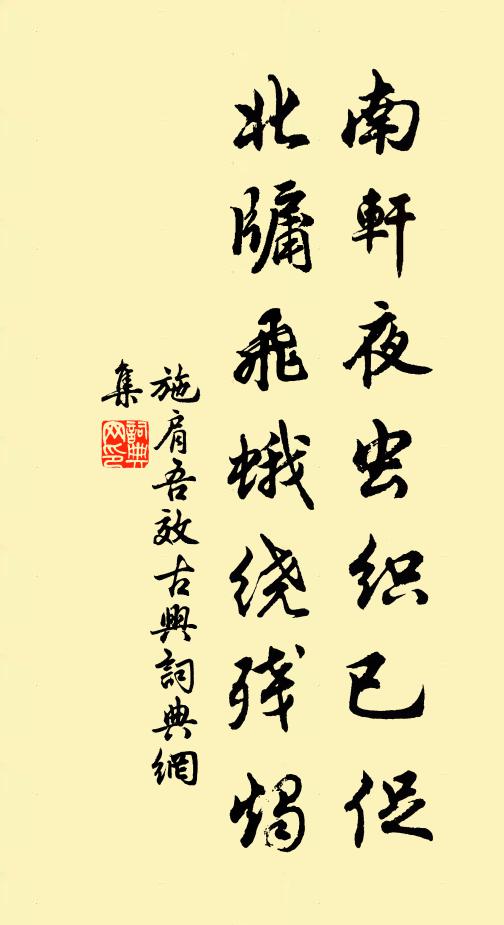 南軒夜虫织已促
北牖飛蛾绕残燭
施肩吾效古興詞典網
集
詞典
网印